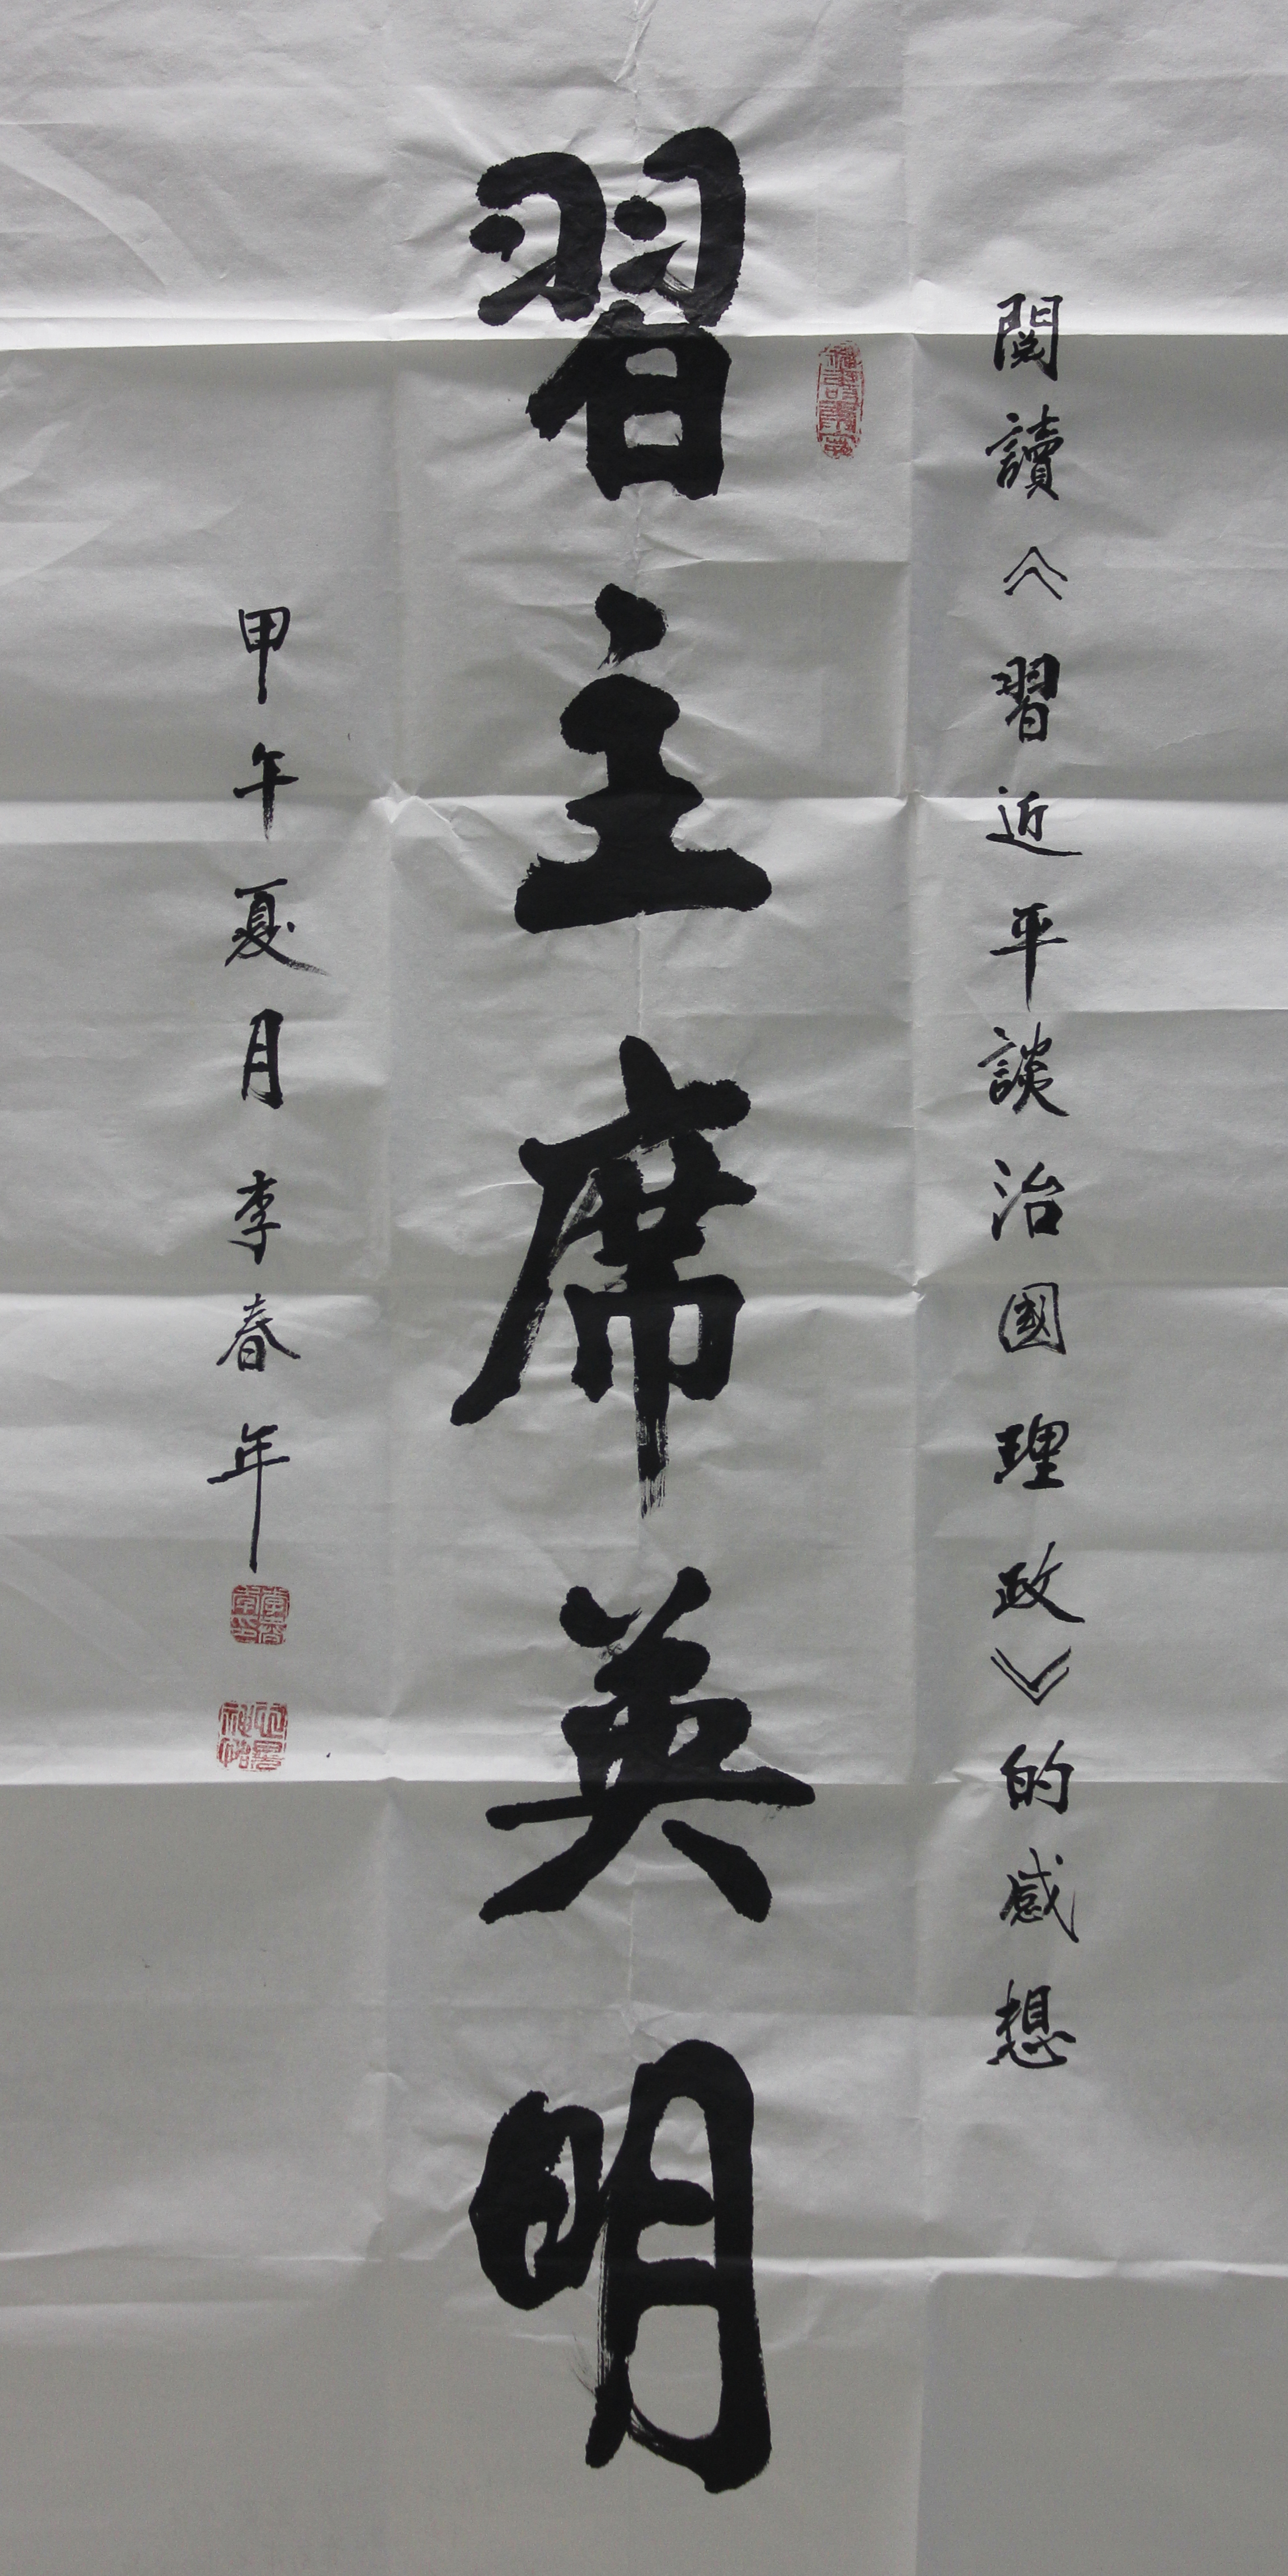 閱讀《習近平談治國理政》的感想
習主席英明
甲午夏月李春年